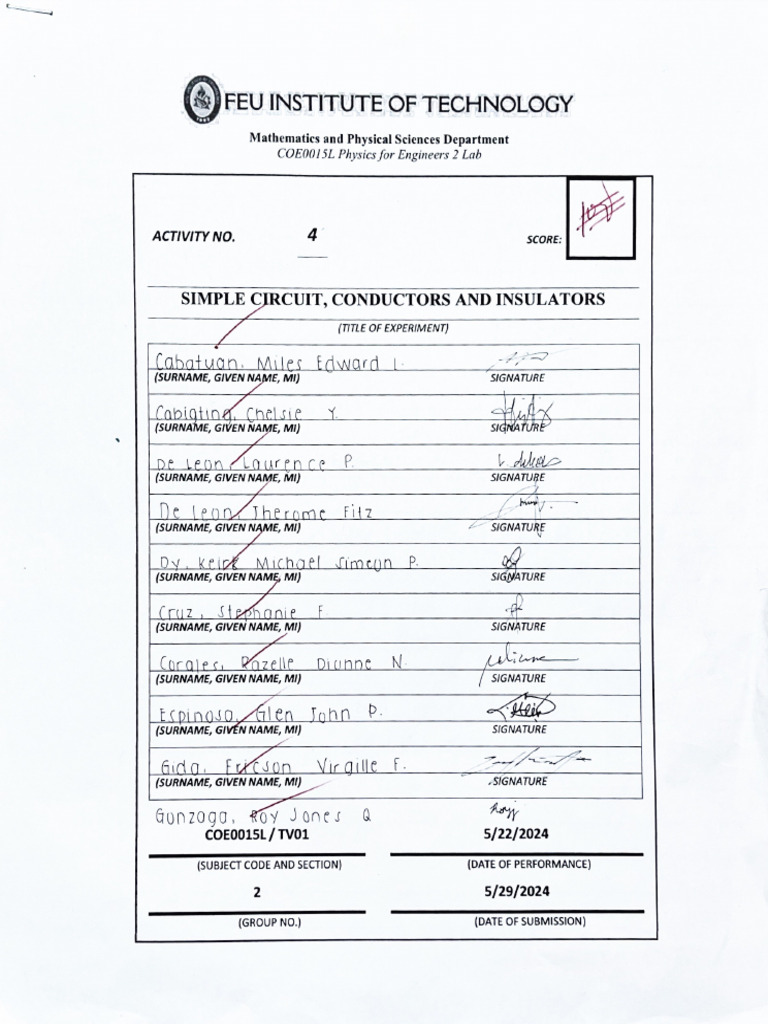 FEU INSTITUTE OF TECHNOLOGY
Mathematics and Physical Sciences Department
COE0015L Physics for Engineers 2 Lab
ACTIVITY NO. 4
SCORE:
SIMPLE CIRCUIT, CONDUCTORS AND INSULATORS
(TITLE OF EXPERIMENT)
Cabatuan, Miles Edward I.
(SURNAME, GIVEN NAME, MI) SIGNATURE
Cabigting, Chelsie Y.
(SURNAME, GIVEN NAME, MI) SIGNATURE
De Leon, Laurence P.
(SURNAME, GIVEN NAME, MI) SIGNATURE
De Leon, Jherome Fitz
(SURNAME, GIVEN NAME, MI) SIGNATURE
Dy, Keirk Michael Simeon P.
(SURNAME, GIVEN NAME, MI) SIGNATURE
Cruz, Stephanie F.
(SURNAME, GIVEN NAME, MI) SIGNATURE
Corales, Razelle Dianne N.
(SURNAME, GIVEN NAME, MI) SIGNATURE
Espinosa, Glen John P.
(SURNAME, GIVEN NAME, MI) SIGNATURE
Gida, Ericson Virgille F.
(SURNAME, GIVEN NAME, MI) SIGNATURE
Gonzaga, Roy Jones Q
COE0015L / TV01 5/22/2024
(SUBJECT CODE AND SECTION) (DATE OF PERFORMANCE)
2 5/29/2024
(GROUP NO.) (DATE OF SUBMISSION)